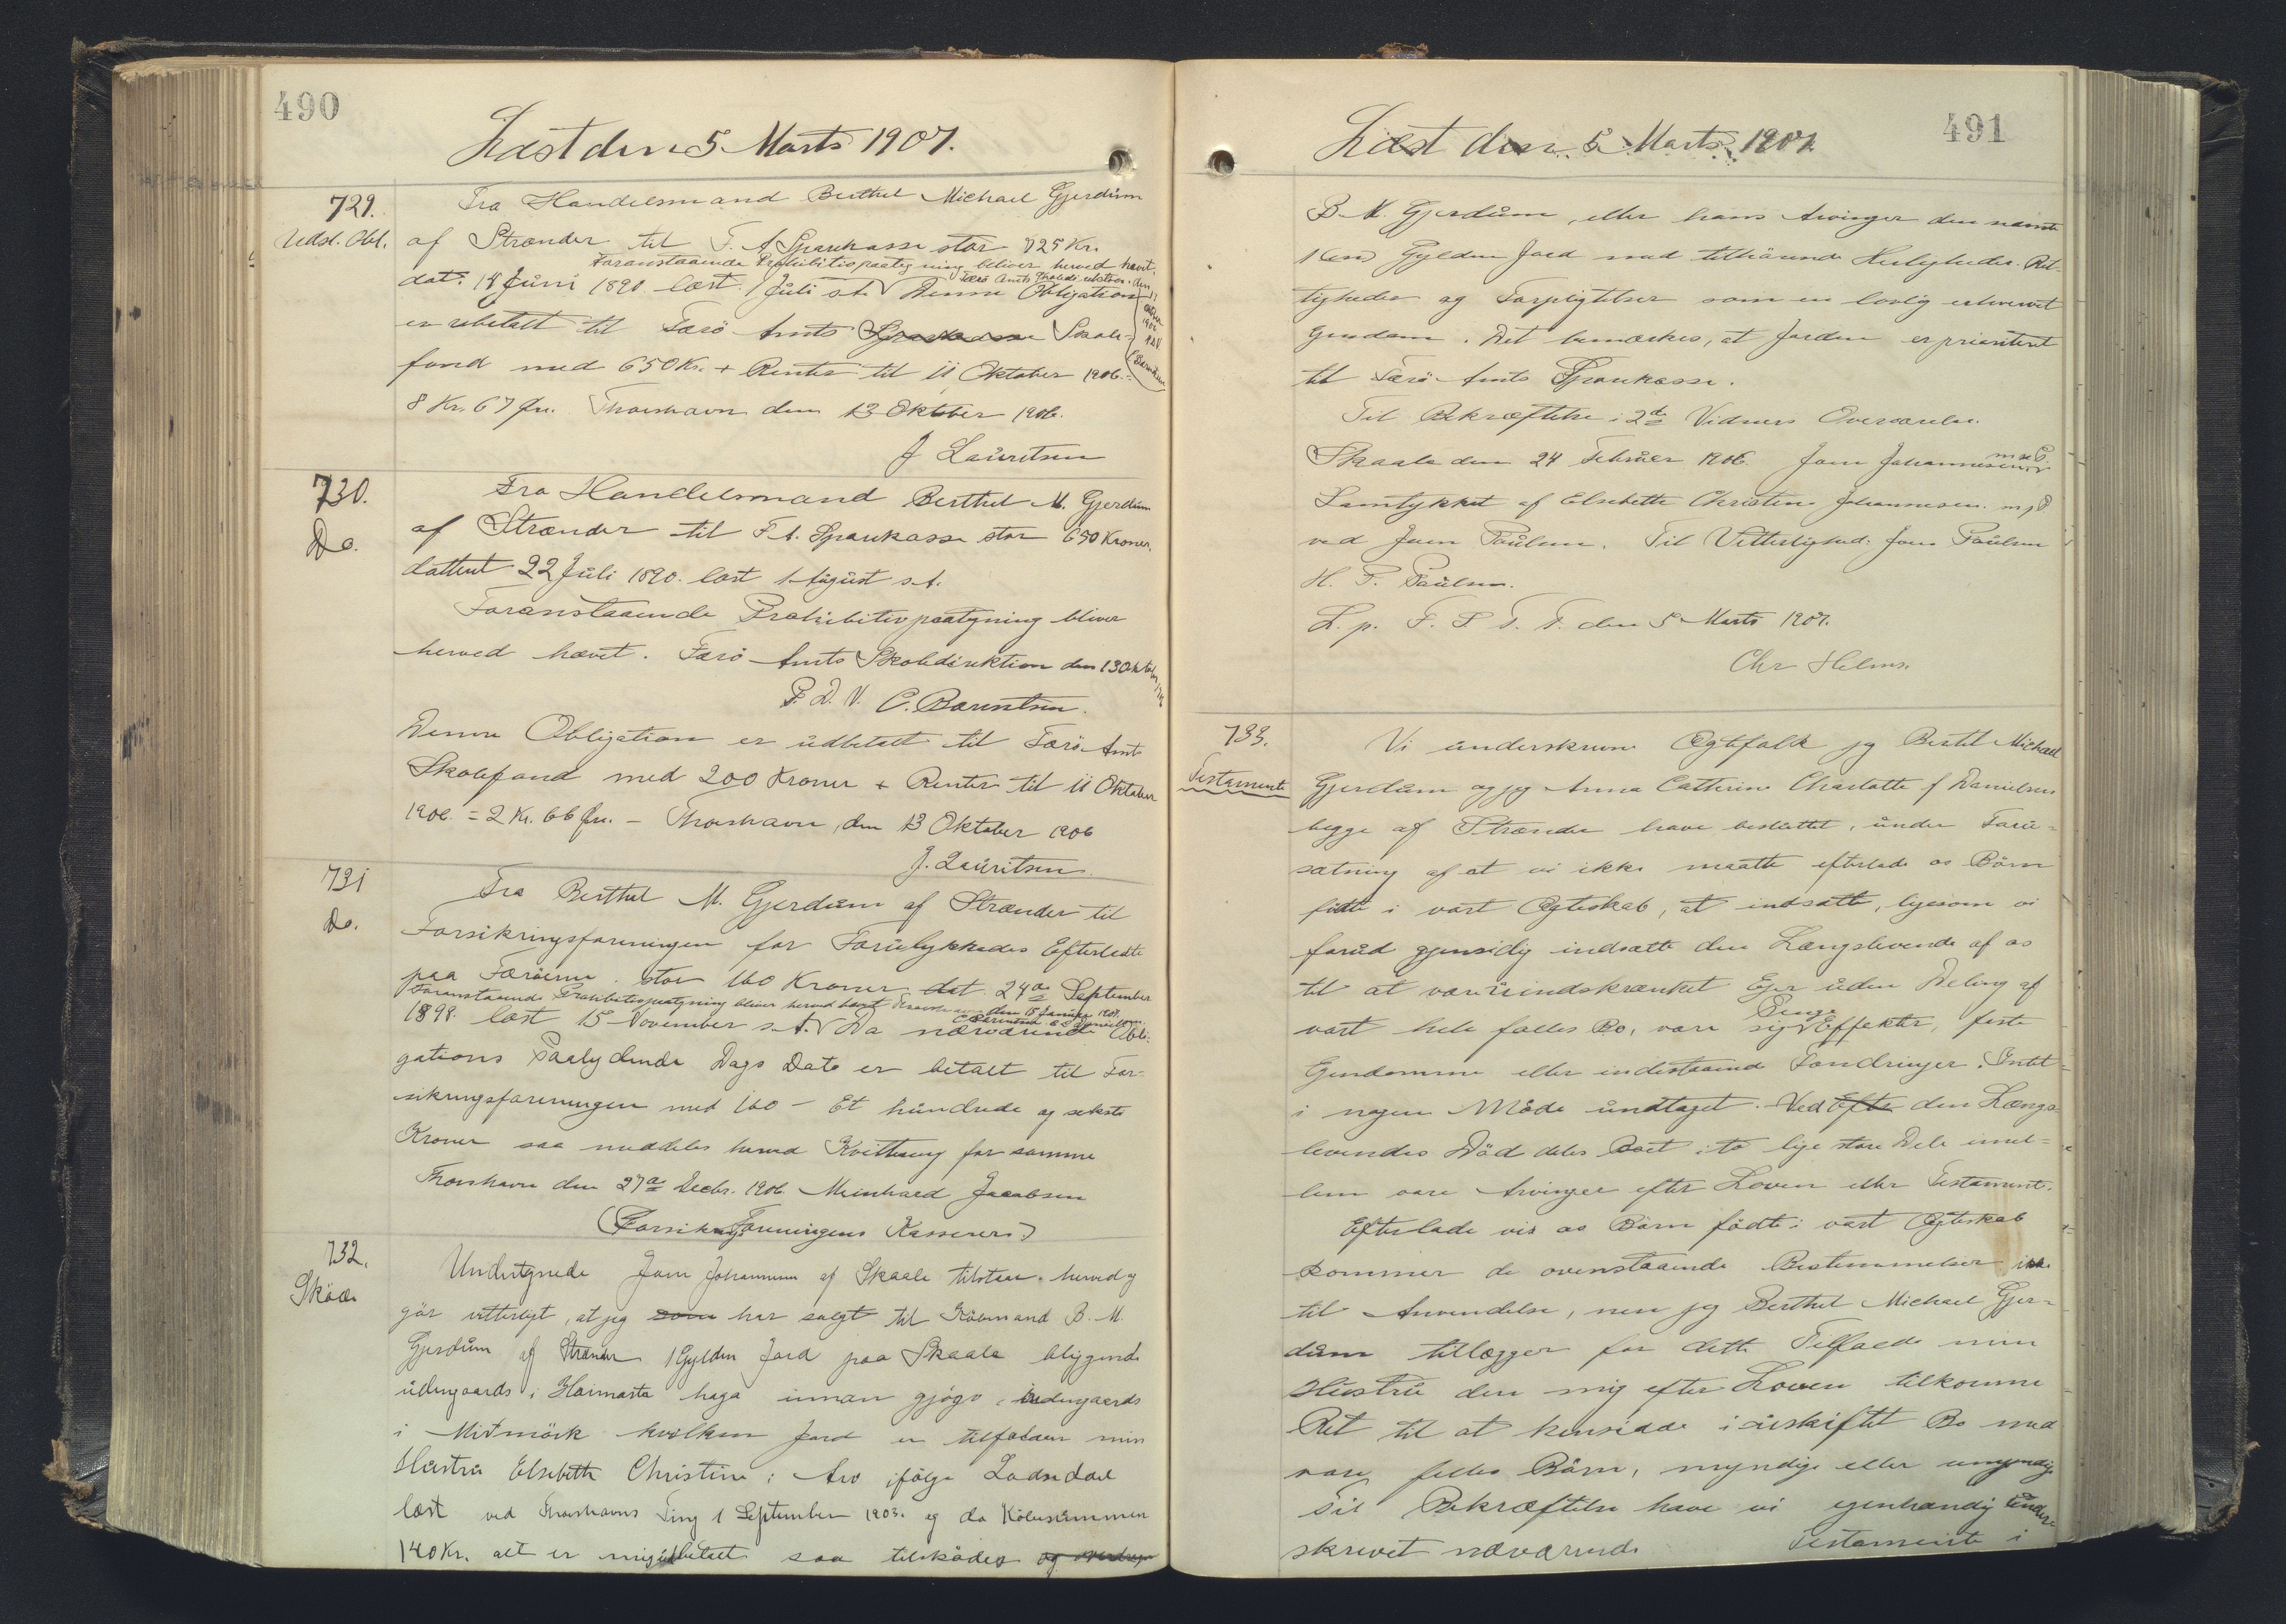 490
Læst den 5 Marts 1907.
729.
Udsl. Obl.
Fra Handelsmand Berthel Michael Gjerdum
af Strænder til F. A. Sparekasse stor 725 Kr.
Foranstaaende Prohibitivpaategning bliver herved hævet.
Færö Amts Skoledirektion den
dat: 14 Juni 1890 læst 1 Juli s.A. Denne Obligation
er udbetalt til Færö Amts Sparekasse Skole-
fond med 650 Kr. + Renter til 11 Oktober 1906 =
8 Kr. 67 Øre. Thorshavn den 13 Oktober 1906.
J Lauritsen
730.
Do.
Fra Handelsmand Berthel M. Gjerdum
af Strænder til F. A. Sparekasse stor 650 Kroner,
dateret 22 Juli 1890. læst 1 August s.A.
Foranstaaende Prohibitivpaategning bliver
herved hævet. Færö Amts Skoledirektion den 13 Oktober
P. D. V. C. Bærentsen.
Denne Obligation er udbetalt til Færö Amts
Skolefond med 200 Kroner + Renter til 11 Oktober
1906 = 2 Kr. 66 Øre. – Thorshavn, den 13 Oktober 1906
J. Lauritsen
731
Do.
Fra Berthel M. Gjerdum af Strænder til
Forsikringsforeningen for Forulykkedes Efterladte
paa Færöerne stor 160 Kroner dat. 24de September
Foranstaaende Prohibitivpaategning bliver herved hævet Thorshavn den 15 Januar 1907.
C Bærentsen. C C Danielsen
1898. læst 15 November s.A. Da nærværende Obli-
gations Paalydende Dags Dato er betalt til For-
sikringsforeningen med 160 – Et hundrede og seksti
Kroner saa meddeles herved Kvittering for samme
Thorshavn den 27de Decbr. 1906. Meinhard Jacobsen
(Forsikrings Foreningens Kasserer)
732.
Sköde
Undertegnede Joen Johannesen af Skaale tilstaar herved og
gör vitterligt, at jeg som har solgt til Köbmand B. M.
Gjerdum af Strænder 1 Gylden Jord paa Skaale bliggende
udengaards i Heimasta haga innan gjógv, indengaards
i Mitmörk hvilken Jord er tilfalden min
Hustru Elsebeth Christine i Arv ifölge Lodsedel
læst ved Thorshavns Ting 1 September 1903. og da Köbesummen
140 Kr. alt er mig udbetalt saa tilsködes og overdrages
491
Læst den 5 Marts 1907.
B. M. Gjerdum, eller hans Arvinger den nævnte
1 (en) Gylden Jord med tilhörende Herligheder Ret-
tigheder og Forpligtelser som en lovlig erhvervet
Ejendom. Det bemærkes, at Jorden er prioriteret
til Færö Amts Sparekasse.
Til Bekræftelse i 2de Vidners Overværelse.
Skaale den 24 Februar 1906. Joen Johannesen m. p. P.
Samtykket af Elsebette Christine Johannesen. m. p. P.
ved Joen Poulsen. Til Vitterlighed: Joen Poulsen
H. P. Poulsen.
L. p. F. S. T. T. den 5 Marts 1907.
Chr Helms.
733.
Testamente
Vi underskrevne Ægtefolk jeg Bertel Michael
Gjerdum og jeg Anna Cathrine Charlotte f Danielsen
begge af Strænder have besluttet, under Foru-
sætning af at vi ikke maatte efterlade os Börn
födte i vort Ægteskab, at indsætte, ligesom vi
forud gjensidig indsætte den Længstlevende af os
til at være uindskrænket Ejer uden Deling af
vort hele fælles Bo, være sig Penge Effekter, faste
Ejendomme eller indestaaende Fordringer. Intet
i nogen Måde undtaget. Ved Efter den Længst-
levendes Död deles Boet i to lige store Dele imel-
lem vore Arvinger efter Loven eller Testament.
Efterlade vis os Börn födte i vort Ægteskab
kommer de ovenstaaende Bestemmelser ikke
til Anvendelse, men jeg Berthel Michael Gjer-
dum tillægger for dette Tilfælde min
Hustru den mig efter Loven tilkomne
Ret til at hensidde i uskiftet Bo med
vore fælles Börn, myndige eller umyndige
Til Bekræftelse have vi egenhændig under-
skrevet nærværende Testamente i